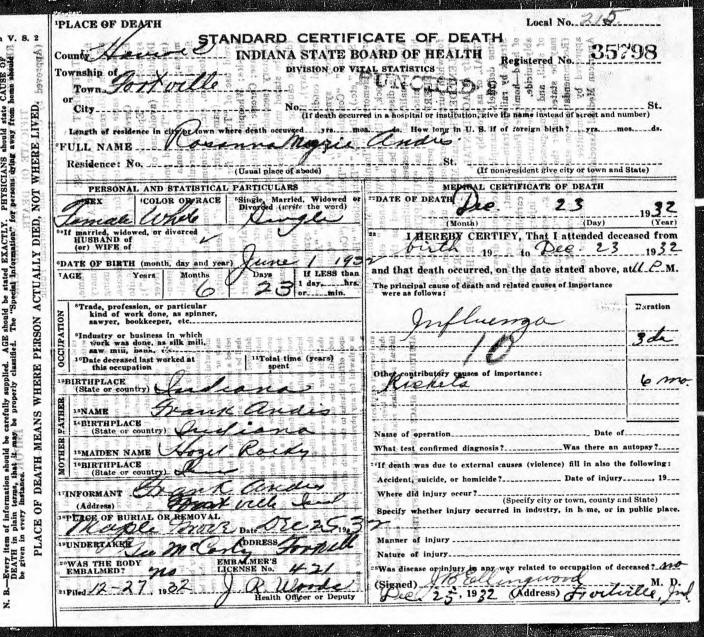 PLACE OF DEATH
Local No. 215
STANDARD CERTIFICATE OF DEATH
County
INDIANA STATE BOARD OF HEALTH
Registered No. 35798
Township of
DIVISION OF VITAL STATISTICS
Town Fortville
or
City No. St.
(If death occurred in a hospital or institution, give its name instead of street and number)
Length of residence in city or town where death occurred yrs. mos. ds. How long in U. S. if of foreign birth? yrs. mos. ds.
FULL NAME Rosanna Andis
Residence: No. St.
(Usual place of abode) (If non-resident give city or town and State)
PERSONAL AND STATISTICAL PARTICULARS
SEX COLOR OR RACE Single, Married, Widowed or Divorced (write the word)
Female White Single
If married, widowed, or divorced
HUSBAND of
(or) WIFE of
DATE OF BIRTH (month, day and year) June 1 1932
AGE Years Months Days If LESS than
6 23 1 day, hrs.
or min.
OCCUPATION
Trade, profession, or particular
kind of work done, as spinner,
sawyer, bookkeeper, etc.
Industry or business in which
work was done, as silk mill,
saw mill, bank, etc.
Date deceased last worked at this occupation
Total time (years) spent
BIRTHPLACE
(State or country) Indiana
FATHER
NAME Frank Andis
BIRTHPLACE
(State or country) Indiana
MOTHER
MAIDEN NAME Hazel
BIRTHPLACE
(State or country) Ind
INFORMANT Frank Andis
(Address) Fortville Ind
PLACE OF BURIAL OR REMOVAL
Maple Date Dec 25 1932
UNDERTAKER ADDRESS
Geo McCarty Fortville
WAS THE BODY EMBALMED? no
EMBALMER'S LICENSE No. 421
Filed 12-27, 1932 J. R. Woods
Health Officer or Deputy
MEDICAL CERTIFICATE OF DEATH
DATE OF DEATH Dec 23 1932
(Month) (Day) (Year)
I HEREBY CERTIFY, That I attended deceased from
birth 19 to Dec 23 1932
and that death occurred, on the date stated above, at 11 P. M.
The principal cause of death and related causes of importance
were as follows:
Duration
Influenza 3 da
10
Other contributory causes of importance:
Rickets 6 mo.
Name of operation Date of
What test confirmed diagnosis? Was there an autopsy?
If death was due to external causes (violence) fill in also the following:
Accident, suicide, or homicide? Date of injury 19
Where did injury occur?
(Specify city or town, county and State)
Specify whether injury occurred in industry, in home, or in public place.
Manner of injury
Nature of injury
Was disease or injury in any way related to occupation of deceased? no
(Signed) J B Ellingwood M. D.
Dec 25, 1932 (Address) Fortville, Ind
N. B.—Every item of information should be carefully supplied. AGE should be stated EXACTLY. PHYSICIANS should state CAUSE OF
DEATH in plain terms, that it may be properly classified. The "Special Information" for persons dying away from home should
be given in every instance.
PLACE OF DEATH MEANS WHERE PERSON ACTUALLY DIED, NOT WHERE LIVED.
V. S. 2